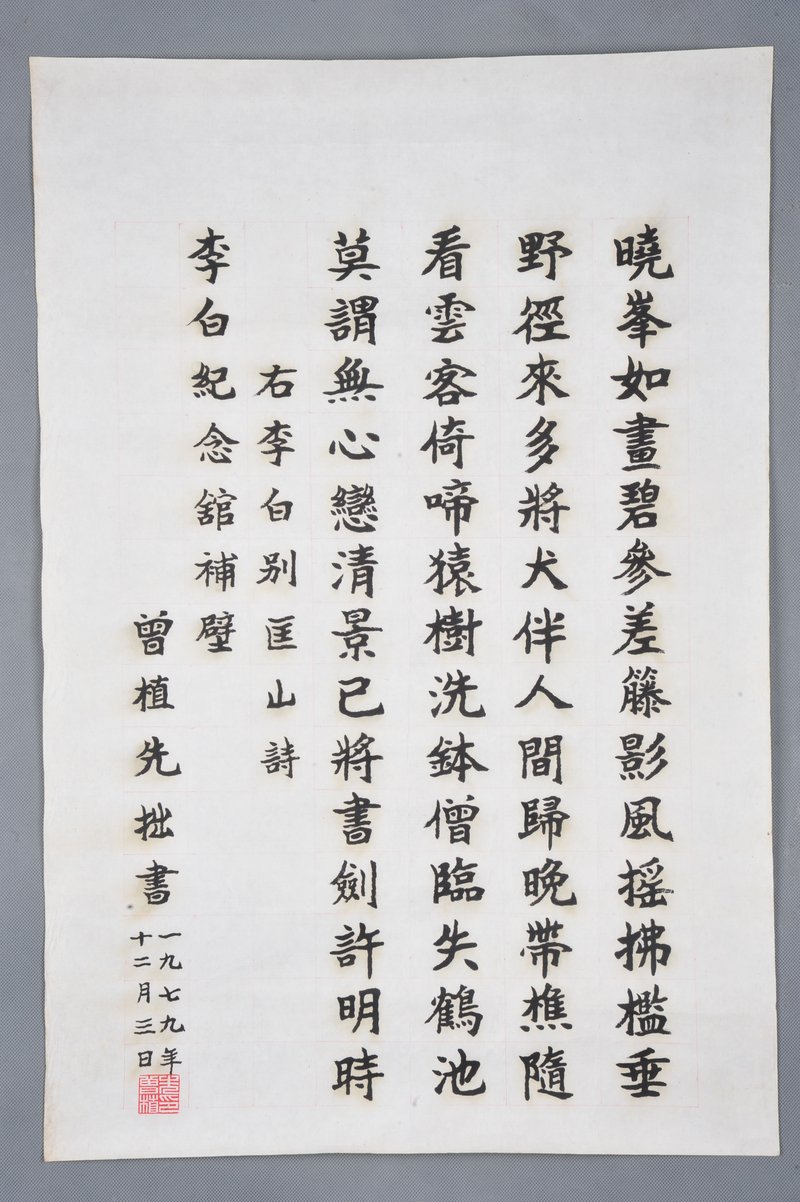 曉峯如畫碧參差籐影風摇拂檻垂
野徑來多將犬伴人間歸晚帶樵隨
看雲客倚啼猿樹洗鉢僧臨失鶴池
莫謂無心戀清景已將書劍許明時
右李白别匡山詩
李白紀念舘補壁
曾植先拙書
一九七九年
十二月三日